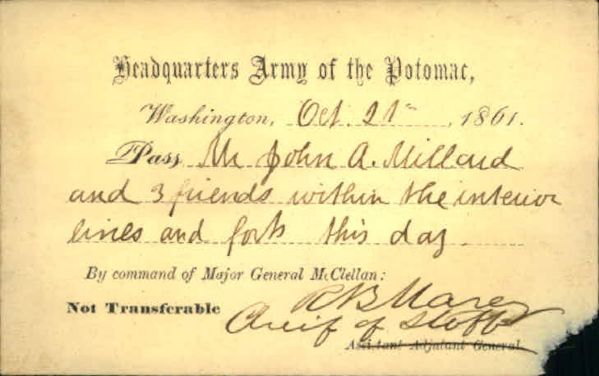 Headquarters Army of the Potomac,
Washington, Oct. 21st, 1861.
Pass Mr John A. Millard
and 3 friends within the interior
lines and forts this day
By command of Major General McClellan:
Not Transferable R B Marcy
Chief of Staff
Assistant Adjutant General.